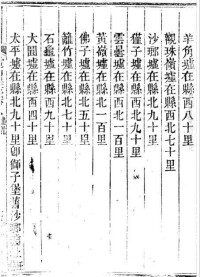 羊角墟在縣西八十里
觀珠嶺墟在縣西北七十里
沙瑯墟在縣北九十里
僅子墟在縣西北九十里
雲曇墟在縣西北一百里
黃嶺墟在縣北一百里
佛子墟在縣北五十里
籬竹墟在縣北七十里
石龜墟在縣西九十里
大園墟在縣西四十里
太平墟在縣北九十里卽獅子堡舊沙瑯